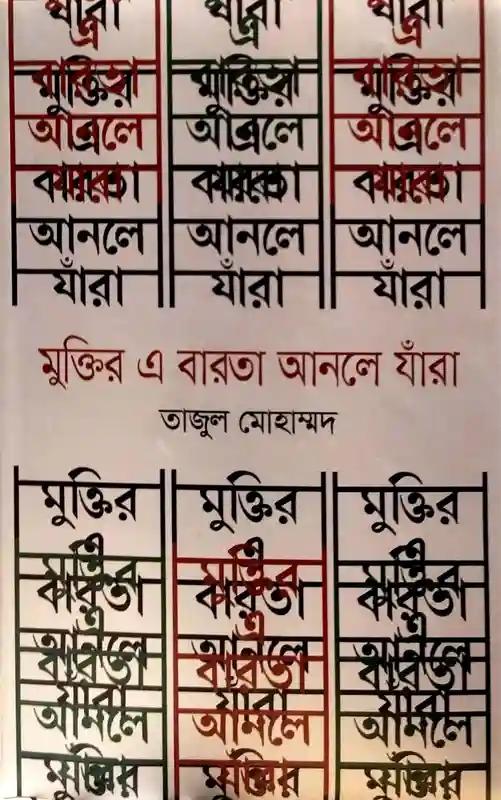 যাঁরা যাঁরা যাঁরা
এ এ এ
বারতা বারতা বারতা
মুক্তির মুক্তির মুক্তির
আনলে আনলে আনলে
যাঁরা যাঁরা যাঁরা
আনলে আনলে আনলে
যাঁরা যাঁরা যাঁরা
মুক্তির এ বারতা আনলে যাঁরা
তাজুল মোহাম্মদ
মুক্তির মুক্তির মুক্তির
এ এ এ
মুক্তির মুক্তির মুক্তির
বারতা বারতা বারতা
এ এ এ
আনলে আনলে আনলে
বারতা বারতা বারতা
যাঁরা যাঁরা যাঁরা
আনলে আনলে আনলে
মুক্তির মুক্তির মুক্তির